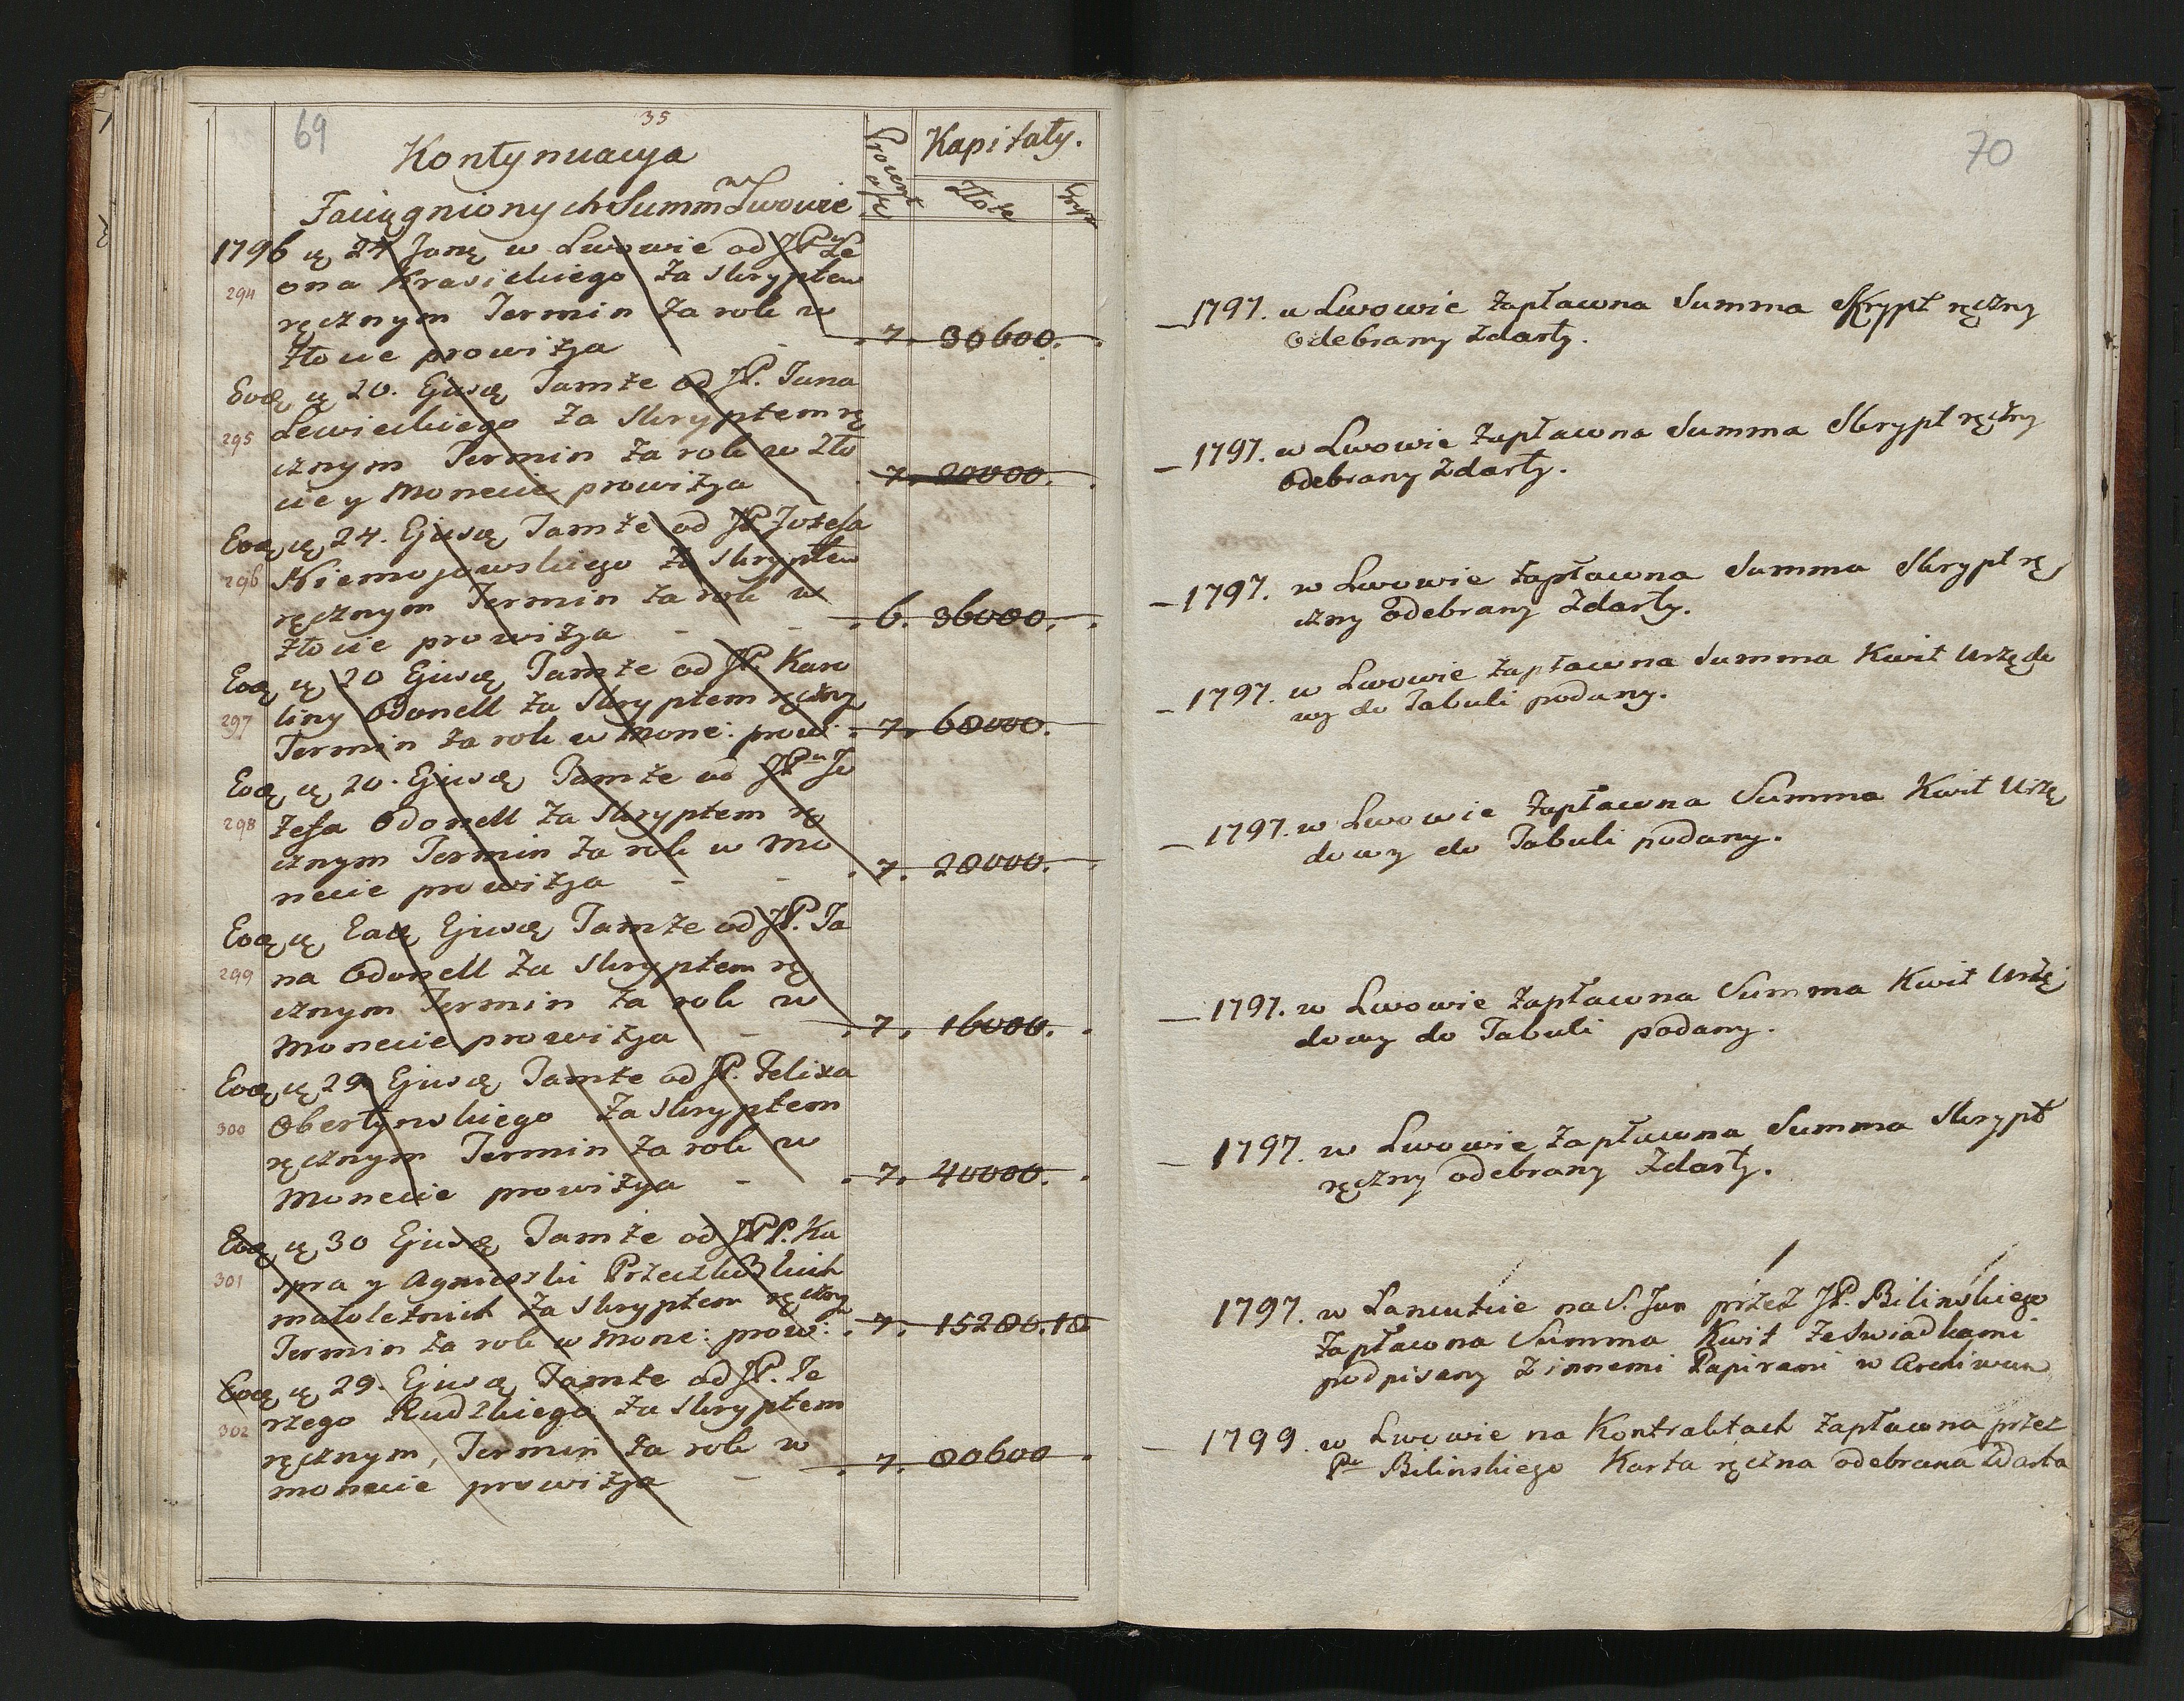 69
35
Kontynuacya
Zaciągnionych Summ w Lwowie
Procent
Kapitały.
Złote
1796 ą 24 Janą w Lwowie od JPa Le
294 ona Krasickiego Za Skryptem
ręcznym Termin Za rok w
Złocie prowizya - 7. 30600.
Eodą ą 20. Ejusą Tamże od JP. Jana
295 Lewickiego Za Skryptem rę
cznym Termin Za rok w Zło
cie y Monecie prowizya 7. 20000.
Eodą ą 24. Ejusą Tamże od JP. Jozefa
296 Niemojowskiego Za Skryptem
ręcznym Termin Za rok w
Złocie prowizya - - 6. 36000.
Eodą ą 20 Ejusą Tamże od JP. Karo
297 liny Odonell Za Skryptem ręczny
Termin Za rok w Mone: prowi: 7. 60000.
Eodą ą 20. Ejusą Tamże od JPa Jo
298 zefa Odonell Za Skryptem rę
cznym Termin Za rok w Mo
necie prowizya - - 7. 20000.
Eodą ą Eadą Ejusą Tamże od JP. Ja
299 na Odonell Za Skryptem rę
cznym Termin Za rok w
Monecie prowizya - 7. 16000.
Eodą ą 29. Ejusą Tamże od JP. Felixa
300 Obertynskiego Za Skryptem
ręcznym Termin Za rok w
Monecie prowizya - 7. 40000.
Eodą ą 30 Ejusą Tamże od JPP. Ka
301 spra y Agnieszki
małoletnich Za Skryptem ręczny
Termin Za rok w Mone: prow: 7. 15200.10
Eodą ą 29. Ejusą Tamże od JP. Je
302 rzego Rudzkiego Za Skryptem
ręcznym, Termin Za rok w
monecie prowizya - 7. 80600
70
1797. w Lwowie Zapłacona Summa Skrypt ręczny
Odebrany Zdarty.
1797. w Lwowie Zapłacona Summa Skrypt ręczny
Odebrany Zdarty.
1797. w Lwowie Zapłacona Summa Skrypt rę
czny Odebrany Zdarty.
1797. w Lwowie Zapłacona Summa Kwit Urzędo
wy do Tabuli podany.
1797. w Lwowie Zapłacona Summa Kwit Urzę
dowy do Tabuli podany.
1797. w Lwowie Zapłacona Summa Kwit Urzę
dowy do Tabuli podany.
1797. w Lwowie Zapłacona Summa Skrypt
ręczny odebrany Zdarty.
1797. w Łancucie na S. Jan przez JP. Bilinskiego
Zapłacona Summa Kwit Ze Swiadkami
podpisany Z innemi Papirami w Archiwum
1799. w Lwowie na Kontraktach Zapłacona przez
Pa Bilinskiego Karta ręczna odebrana Zdarta